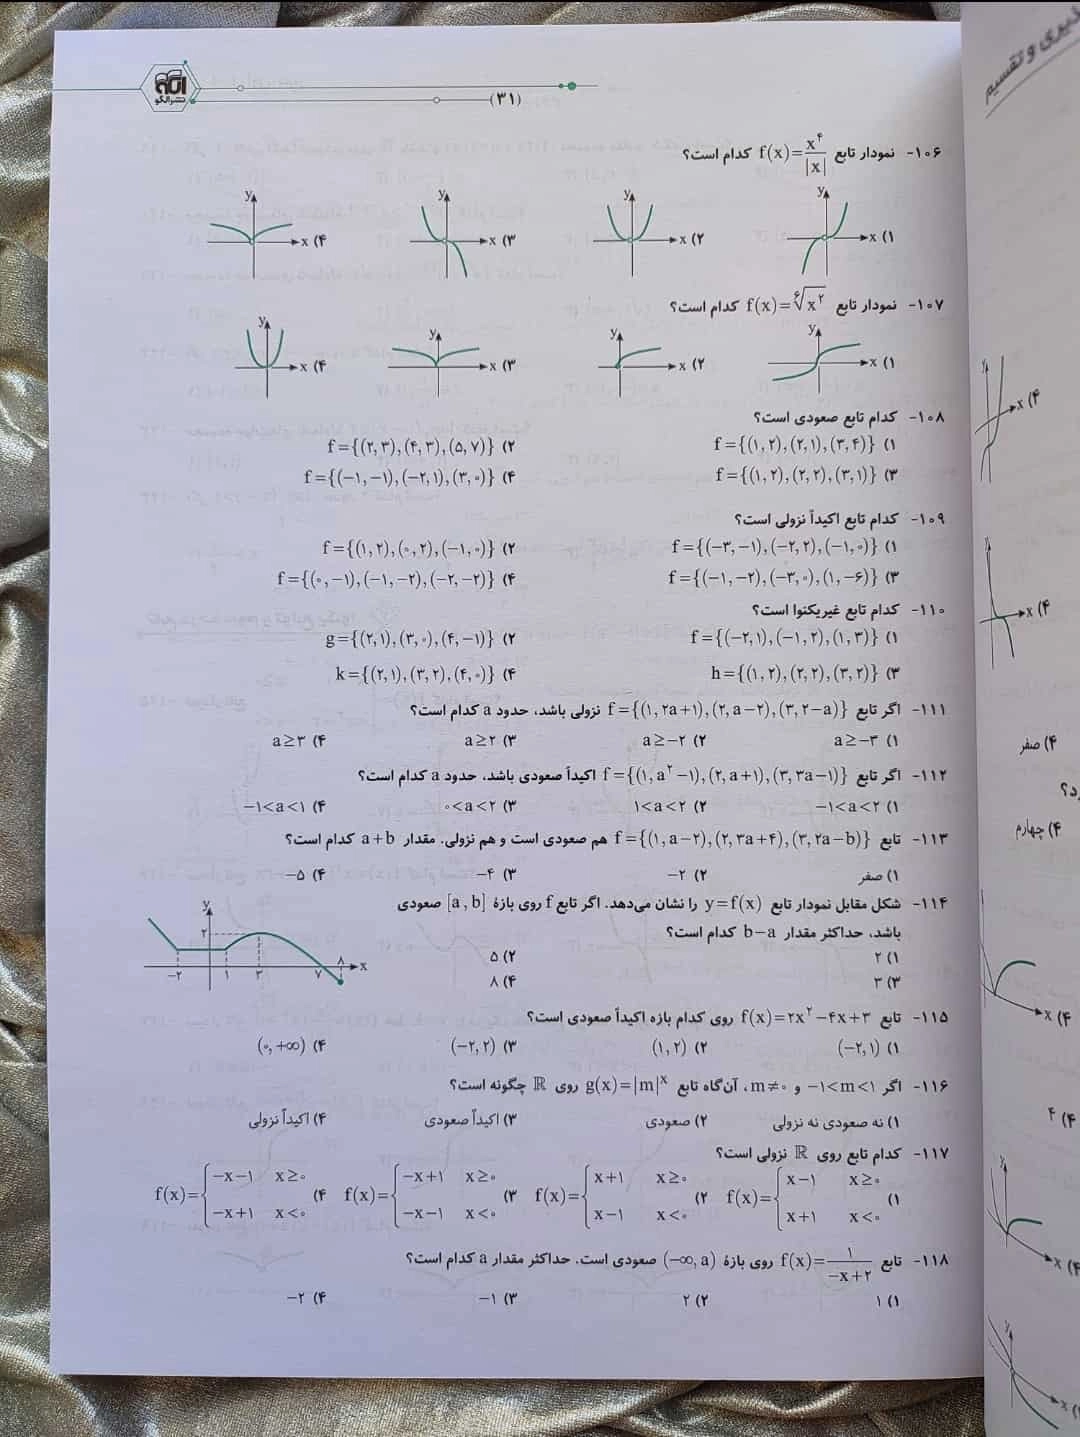 نشر الگو
(۳۱)
۱۰۶- نمودار تابع f(x)=x⁴/|x| کدام است؟
۱) x y
۲) x y
۳) x y
۴) x y
۱۰۷- نمودار تابع f(x)=⁶√x² کدام است؟
۱) x y
۲) x y
۳) x y
۴) x y
۱۰۸- کدام تابع صعودی است؟
۱) f={(۱,۲),(۲,۱),(۳,۴)}
۲) f={(۲,۳),(۴,۳),(۵,۷)}
۳) f={(۱,۲),(۲,۲),(۳,۱)}
۴) f={(−۱,−۱),(−۲,۱),(۳,۰)}
۱۰۹- کدام تابع اکیداً نزولی است؟
۱) f={(−۳,−۱),(−۲,۲),(−۱,۰)}
۲) f={(۱,۲),(۰,۲),(−۱,۰)}
۳) f={(−۱,−۲),(−۳,۰),(۱,−۶)}
۴) f={(۰,−۱),(−۱,−۲),(−۲,−۲)}
۱۱۰- کدام تابع غیریکنوا است؟
۱) f={(−۲,۱),(−۱,۲),(۱,۳)}
۲) g={(۲,۱),(۳,۰),(۴,−۱)}
۳) h={(۱,۲),(۲,۲),(۳,۲)}
۴) k={(۲,۱),(۳,۲),(۴,۰)}
۱۱۱- اگر تابع f={(۱,۲a+۱),(۲,a−۲),(۳,۲−a)} نزولی باشد، حدود a کدام است؟
۱) a≥−۳
۲) a≥−۲
۳) a≥۲
۴) a≥۳
۱۱۲- اگر تابع f={(۱,a²−۱),(۲,a+۱),(۳,۳a−۱)} اکیداً صعودی باشد، حدود a کدام است؟
۱) −۱<a<۲
۲) ۱<a<۲
۳) ۰<a<۲
۴) −۱<a<۱
۱۱۳- تابع f={(۱,a−۲),(۲,۳a+۴),(۳,۲a−b)} هم صعودی است و هم نزولی. مقدار a+b کدام است؟
۱) صفر
۲) −۲
۳) −۴
۴) −۵
۱۱۴- شکل مقابل نمودار تابع y=f(x) را نشان می‌دهد. اگر تابع f روی بازهٔ [a,b] صعودی
باشد، حداکثر مقدار b−a کدام است؟
۱) ۲
۲) ۵
۳) ۳
۴) ۸
y ۲ −۲ ۱ ۳ ۷ ۸ x
۱۱۵- تابع f(x)=۲x²−۴x+۳ روی کدام بازه اکیداً صعودی است؟
۱) (−۲,۱)
۲) (۱,۲)
۳) (−۲,۲)
۴) (۰,+∞)
۱۱۶- اگر −۱<m<۱ و m≠۰، آن‌گاه تابع g(x)=|m|ˣ روی ℝ چگونه است؟
۱) نه صعودی نه نزولی
۲) صعودی
۳) اکیداً صعودی
۴) اکیداً نزولی
۱۱۷- کدام تابع روی ℝ نزولی است؟
۱) f(x)={ x−۱ x≥۰
x+۱ x<۰
۲) f(x)={ x+۱ x≥۰
x−۱ x<۰
۳) f(x)={ −x+۱ x≥۰
−x−۱ x<۰
۴) f(x)={ −x−۱ x≥۰
−x+۱ x<۰
۱۱۸- تابع f(x)=۱/(−x+۲) روی بازهٔ (−∞,a) صعودی است. حداکثر مقدار a کدام است؟
۱) ۱
۲) ۲
۳) −۱
۴) −۲
و تقسیم
۴) x y
۴) x y
۴) صفر
۴) چهارم
۴) x
۴) ۴
۴) x y
x y